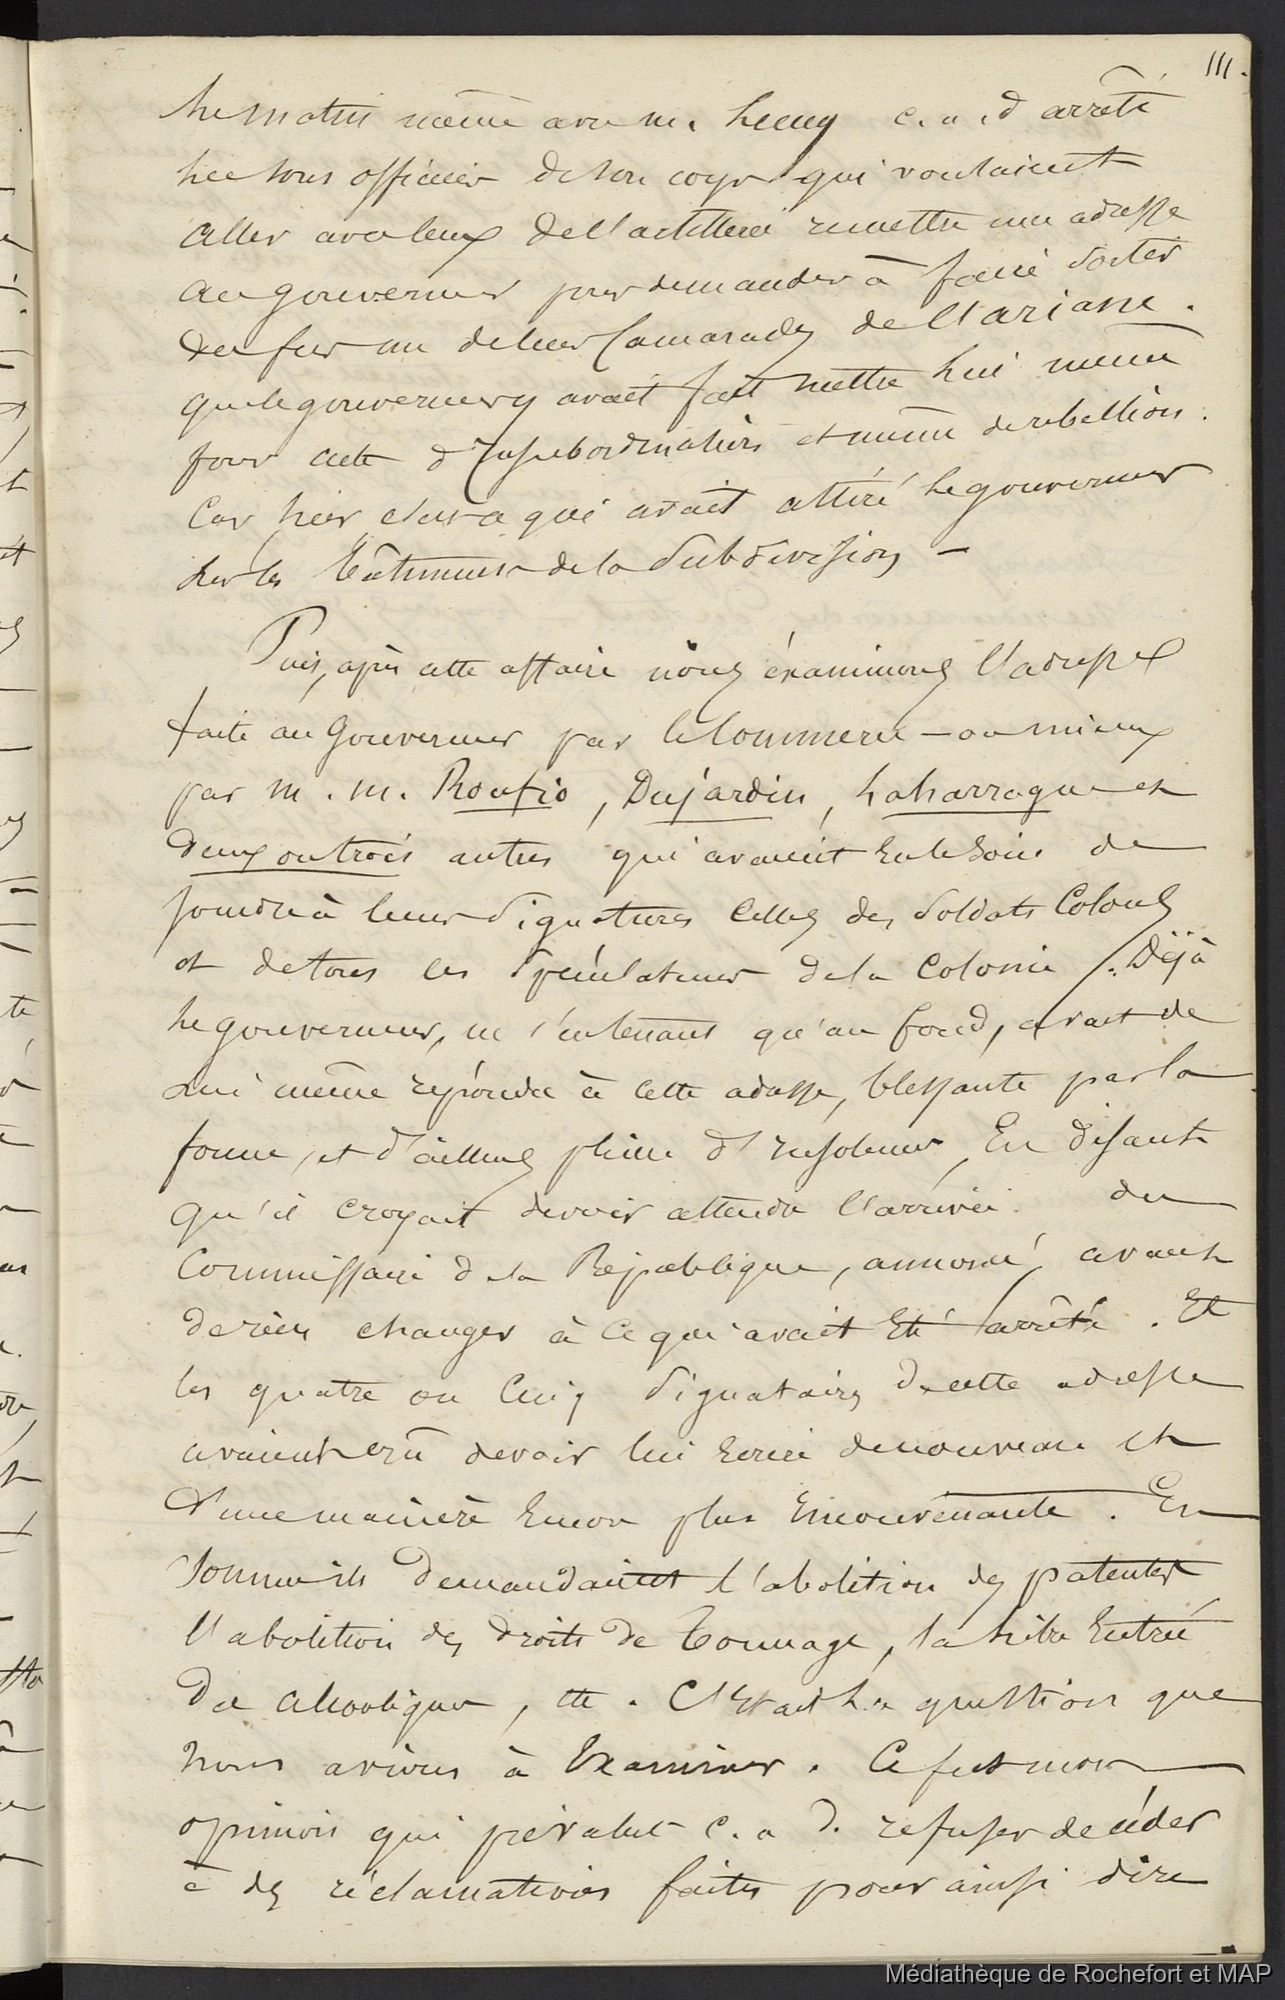 111.
le matin même avec m. c. a. d arrêté
les sous officiers de son corps qui voulaient
aller avec ceux de l'artillerie remettre une adresse
au gouverneur pour demander à faire sortir
des fers un de leurs Camarades de l'ariane.
que le gouverneur y avait fait mettre lui même
pour acte d'Insubordination et même de rebellion.
Car hier c'est ce qui avait attiré le gouverneur
sur les bâtiments de la Subdivision —
Puis, après cette affaire nous examinons l'adresse
faite au Gouverneur par le Commerce — ou mieux
par m. m. Roufio, Dujardin, Laharrague et
deux ou trois autres qui avaient eu le soin de
joindre à leurs signatures celles des Soldats Colons
et de tous les Spéculateurs de la Colonie. Déjà
le gouverneur, ne s'en tenant qu'au fond, avait de
lui même répondu à cette adresse, blessante par la
forme, et d'ailleurs pleine d'insolence, En disant
qu'il croyait devoir attendre l'arrivée du
Commissaire de la République, annoncé, avant
de rien changer à ce qui avait Eté arrêté. Et
les quatre ou Cinq Signataires de cette adresse
avaient crû devoir lui Ecrire de nouveau et
d'une manière Encore plus Inconvenante. En
Somme ils demandaient l'abolition des patentes
l'abolition des droits de Tonnage, la libre Entrée
des alcooliques, etc. C'Etait la question que
nous avions à Examiner. Ce fut mon
opinion qui prévalut c. a d. refuser de céder
à des réclamations faites pour ainsi dire
Médiathèque de Rochefort et MAP